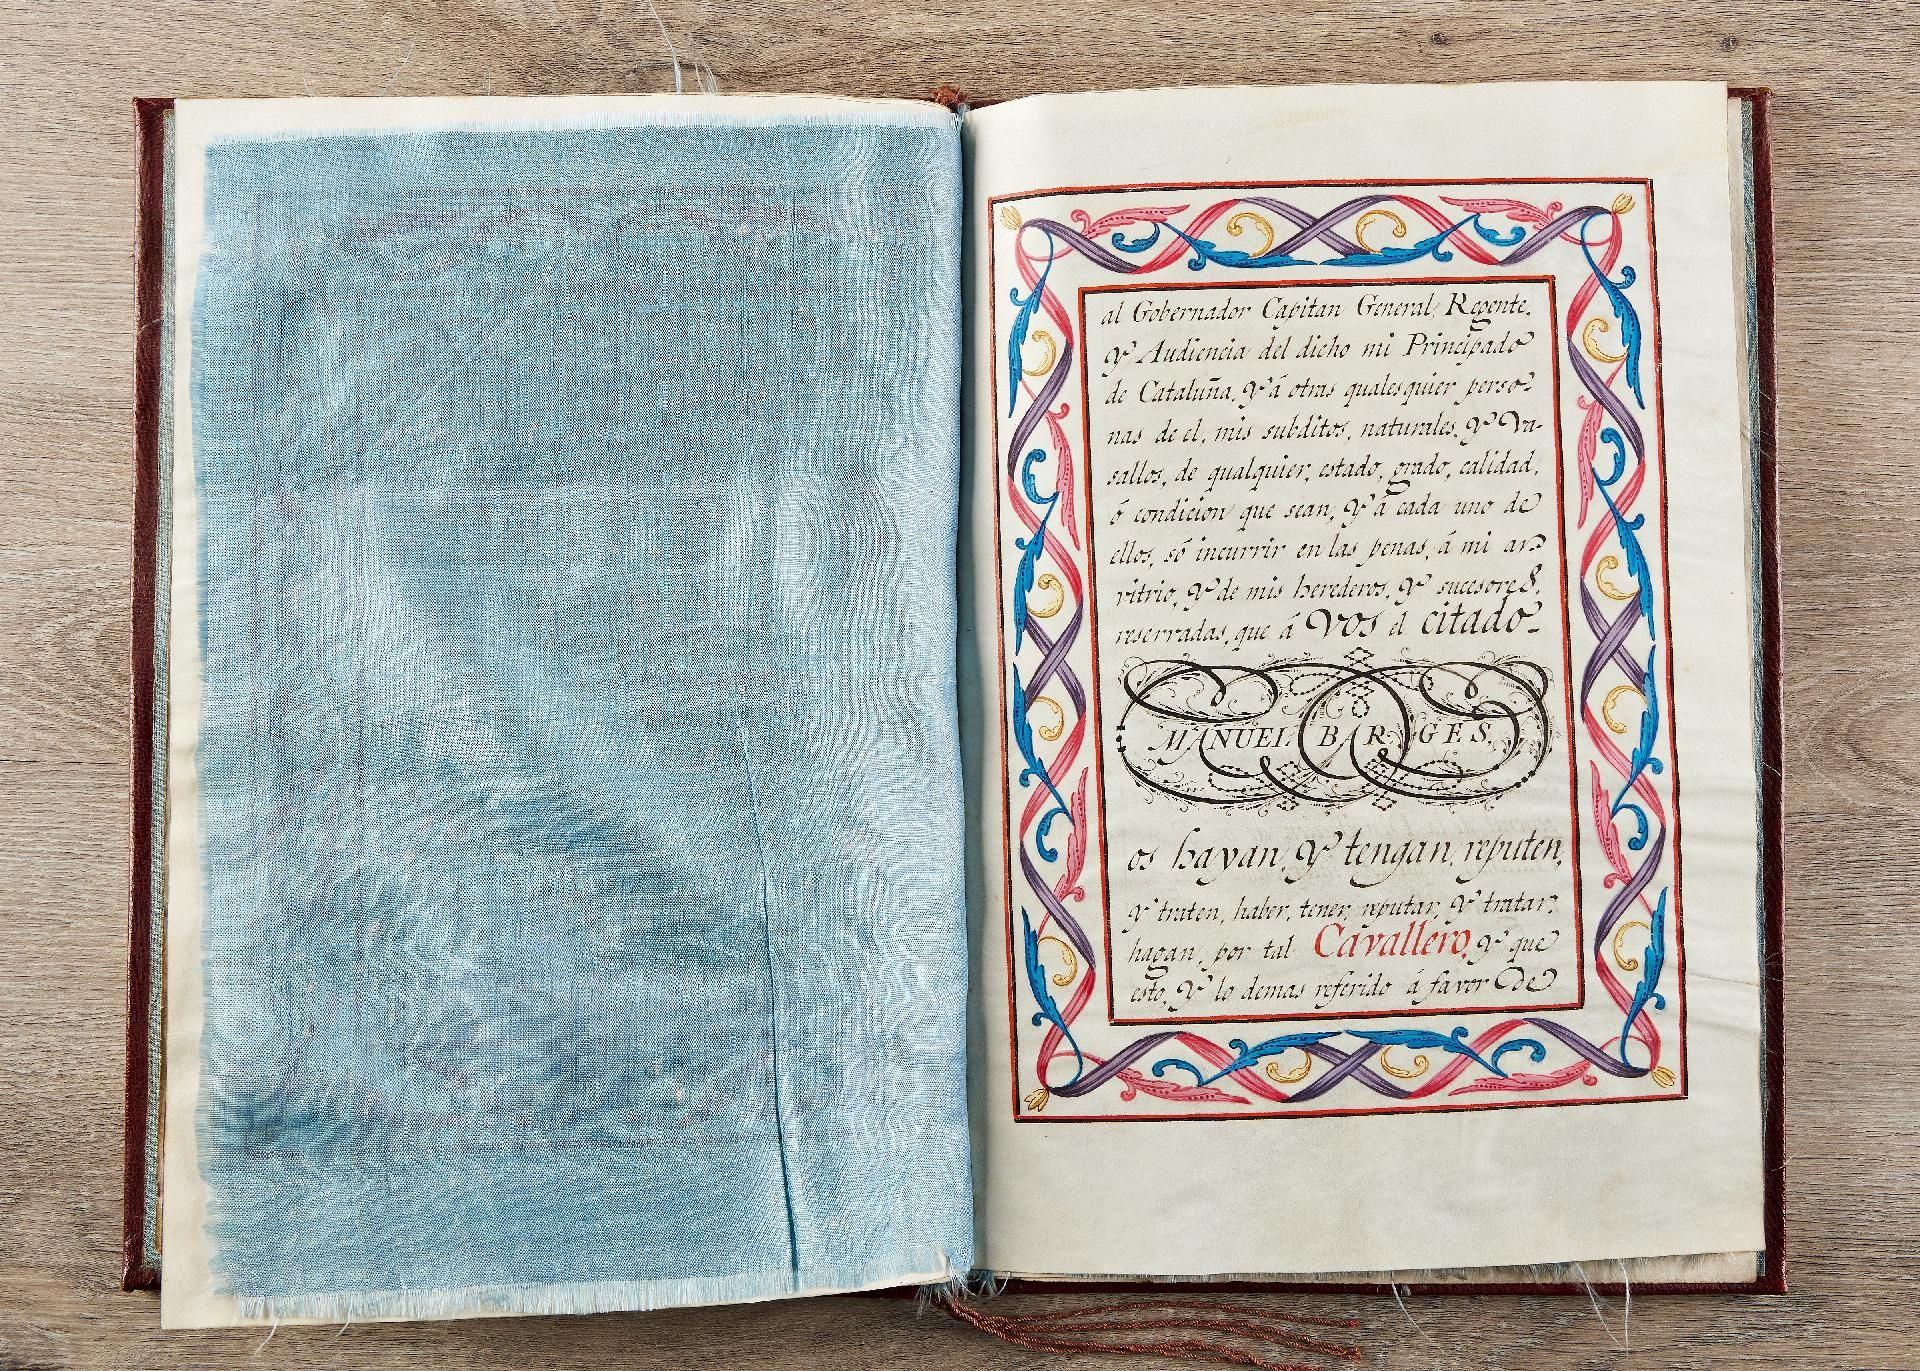 al Gobernador Capitan General, Regente,
Y Audiencia del dicho mi Principado
de Cataluña, Y á otras qualesquier perso-
nas de el, mis subditos, naturales, Y Va-
sallos, de qualquier, estado, grado, calidad,
ó condicion que sean, Y á cada uno de
ellos, só incurrir en las penas, á mi ar-
vitrio, Y de mis herederos, Y sucesores,
reservadas, que á Vos el citado-
MANUEL BARGES,
os hayan, Y tengan, reputen,
Y traten, haber, tener, reputar, Y tratar,
hagan, por tal Cavallero, Y que
esto, Y lo demas referido á favor De